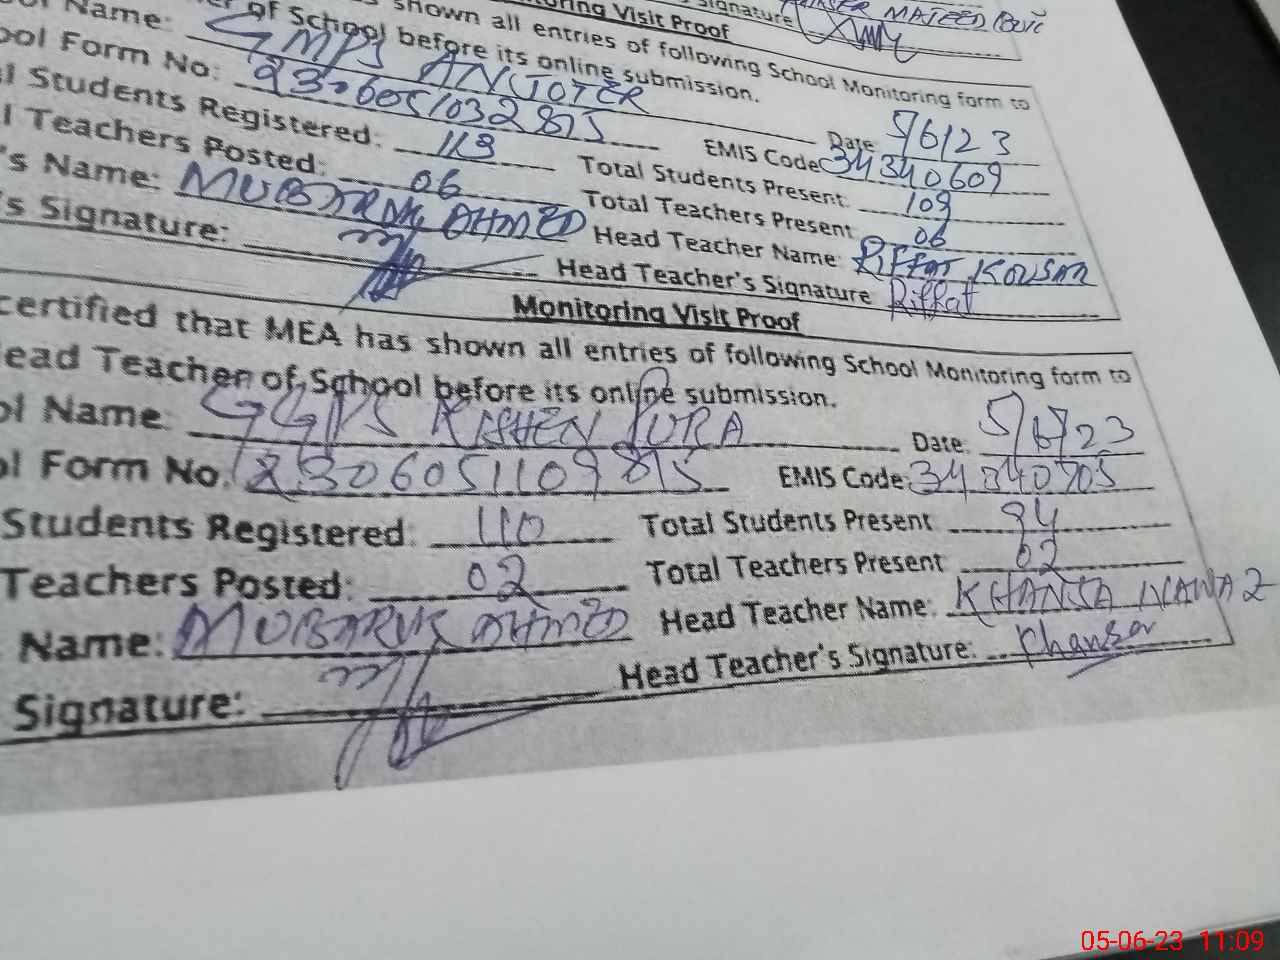 Monitoring Visit Proof
Signature
shown all entries of following School Monitoring form to
of School before its online submission.
Name: GMPS Date: 5/6/23
ool Form No: EMIS Code: 34340609
l Students Registered: 113 Total Students Present: 109
l Teachers Posted: 06 Total Teachers Present 06
's Name: MUBARAK AHMED Head Teacher Name: Riffat KOUSAR
's Signature: Head Teacher's Signature Riffat
Monitoring Visit Proof
certified that MEA has shown all entries of following School Monitoring form to
ead Teacher of School before its online submission.
ol Name: GGPS KISHEN PURA Date: 5/6/23
ol Form No. EMIS Code: 34340705
Students Registered: 110 Total Students Present 94
Teachers Posted: 02 Total Teachers Present 02
Name: MUBARUK AHMED Head Teacher Name: KHANSA NAWAZ
Signature: Head Teacher's Signature: Khansa
05-06-23 11:09